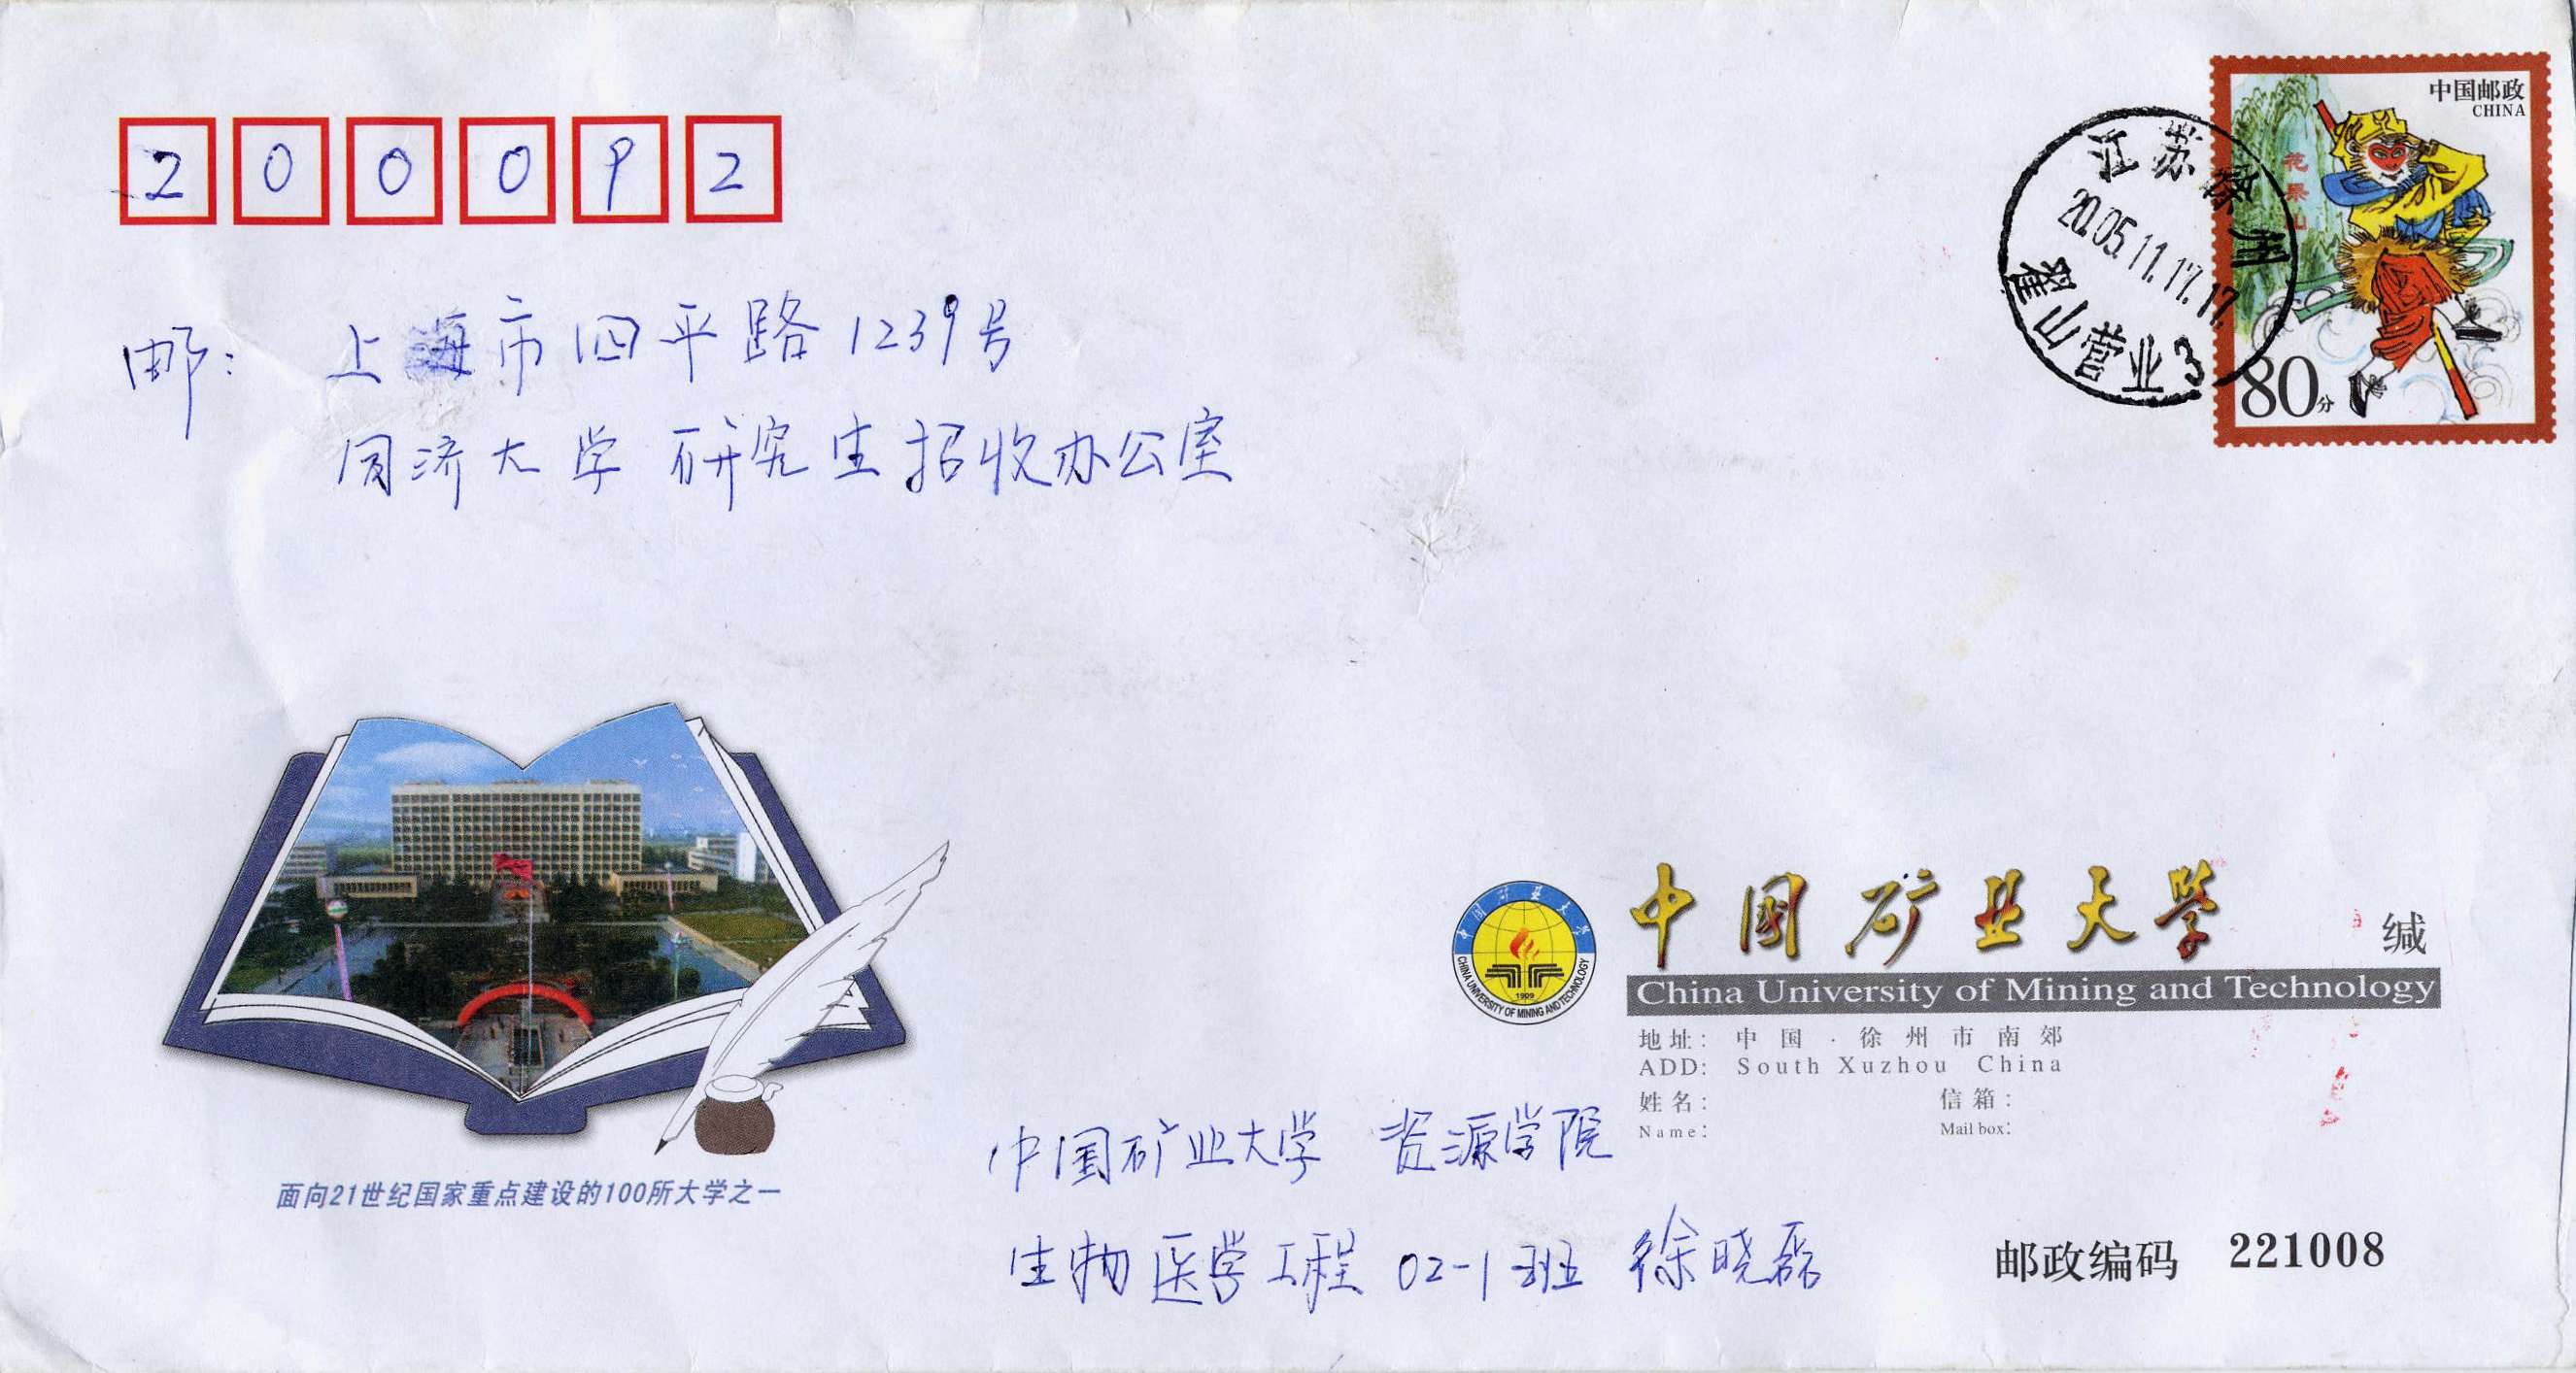 200092
中国邮政
CHINA
花果山
80分
江苏徐州
2005.11.17.17
翟山营业3
邮: 上海市四平路1239号
同济大学 研究生招收办公室
中国矿业大学
CHINA UNIVERSITY OF MINING AND TECHNOLOGY
1909
中国矿业大学 缄
China University of Mining and Technology
地址: 中国·徐州市南郊
ADD: South Xuzhou China
姓名: 信箱:
Name: Mail box:
面向21世纪国家重点建设的100所大学之一
中国矿业大学 资源学院
生物医学工程 02-1班 徐晓磊
邮政编码 221008